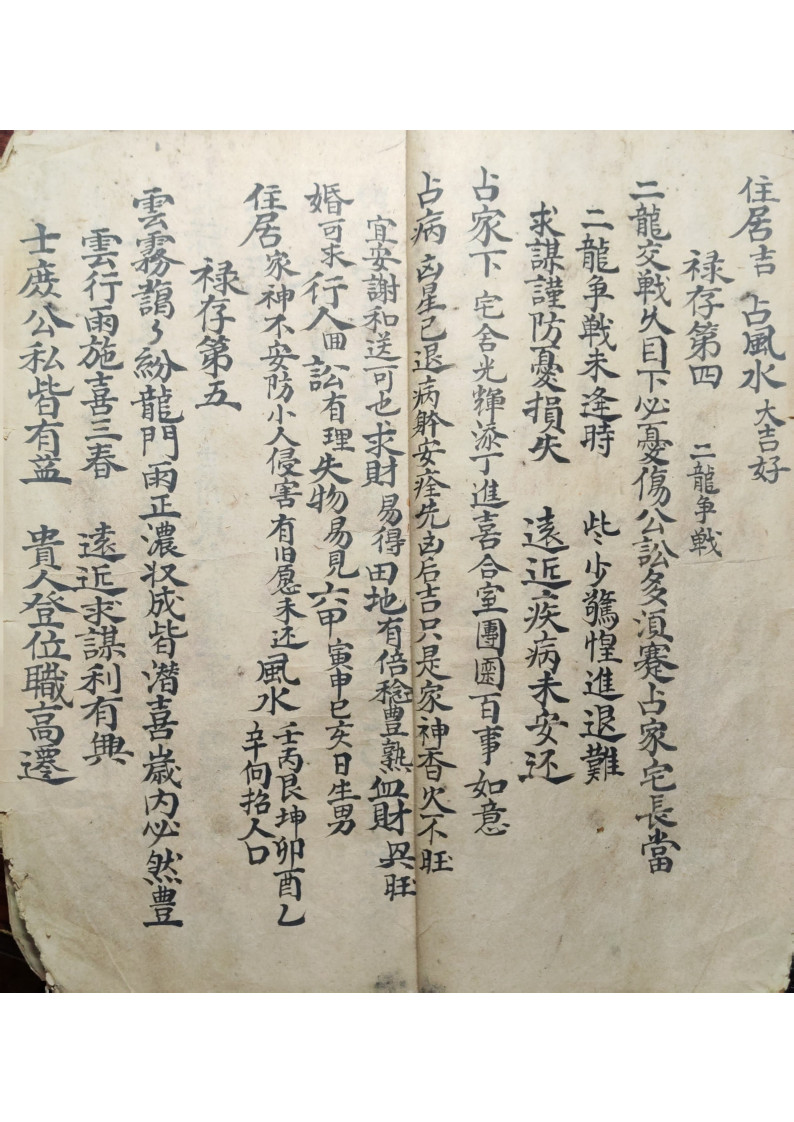 住居吉　占風水大吉好
禄存第四　二龍争戰
二龍交戰久目下必憂傷公訟多湏賽占家宅長當
二龍争戰未逢時　些少驚惶進退難
求謀謹防憂損失　遠近疾病未安还
占家下宅舍光輝添丁進喜合室團圞百事如意
占病凶星已退病躰安痊先凶后吉只是家神香火不旺
宜安謝和送可也求財易得田地有倍稔豊熟血財興旺
婚可求行人回訟有理失物易見六甲寅申巳亥日生男
住居家神不安防小人侵害有旧愿未还風水壬丙艮坤卯酉乙
辛向招人口
禄存第五
雲霧藹々紛龍門雨正濃収成皆潛喜歲内必然豊
雲行雨施喜三春　遠近求謀利有興
士庶公私皆有益　貴人登位職高遷